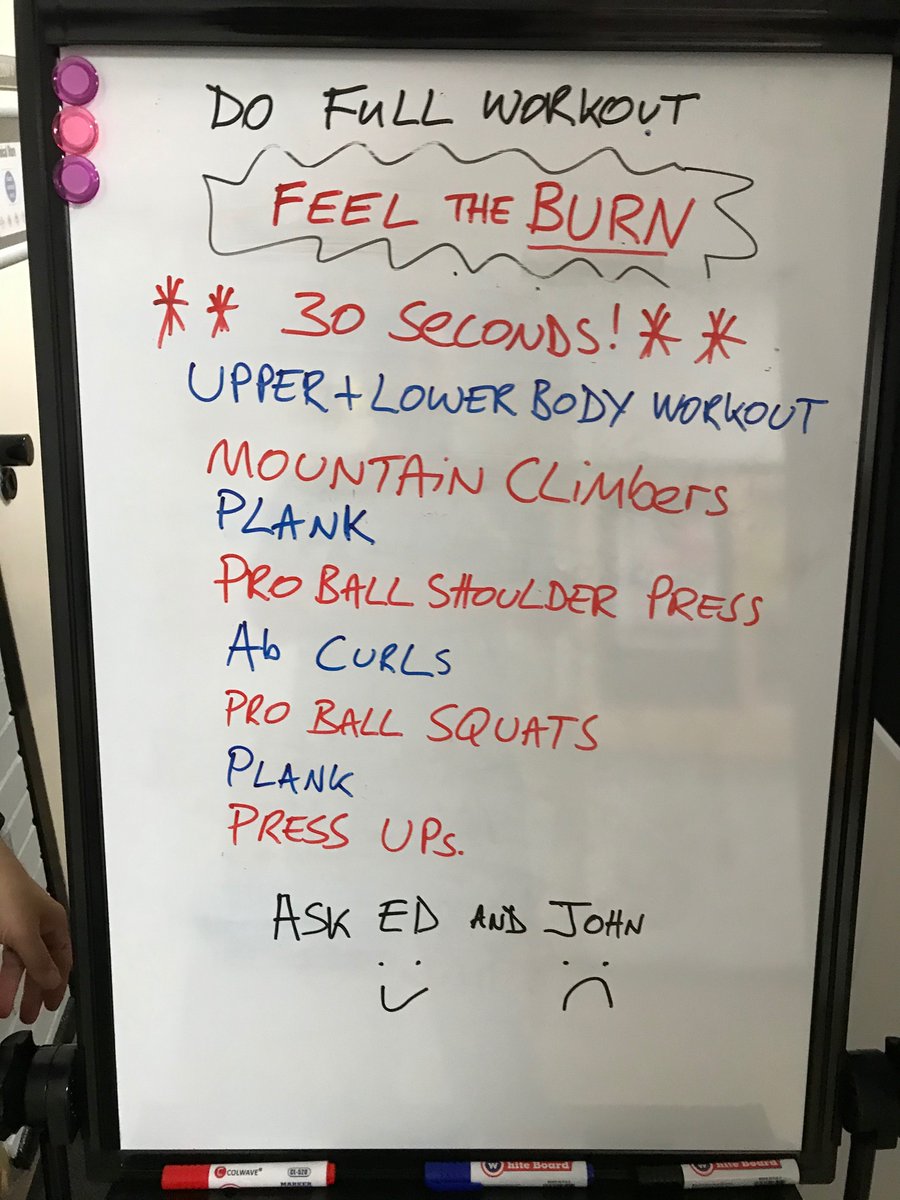 DO FULL WORKOUT
FEEL THE BURN
** 30 SECONDS! **
UPPER + LOWER BODY WORKOUT
MOUNTAIN CLIMBERS
PLANK
PRO BALL SHOULDER PRESS
Ab CURLS
PRO BALL SQUATS
PLANK
PRESS UPs.
ASK ED AND JOHN
COLWAVE CL-520
MARKER
White Board
White Board